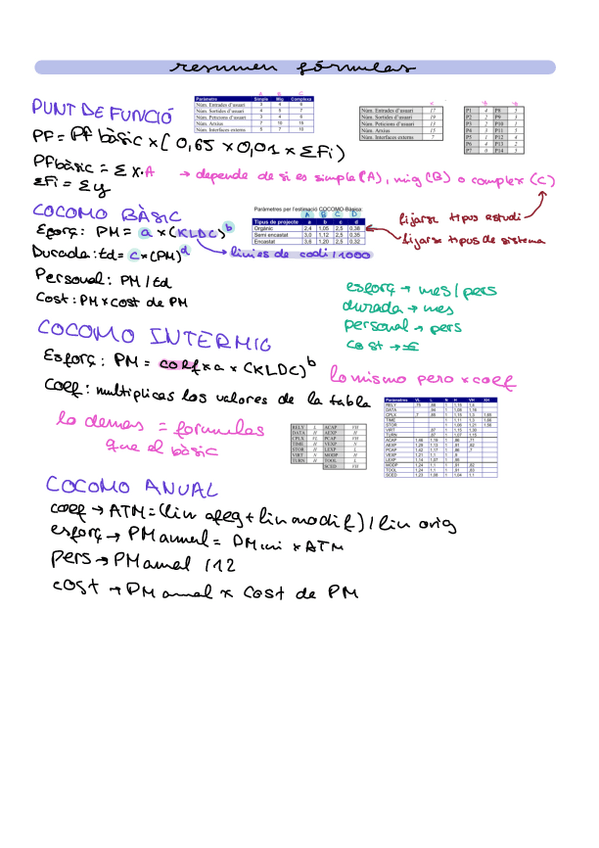 resumen fórmulas
PUNT DE FUNCIÓ
A B C
Paràmetre Simple Mig Complexe
Núm. Entrades d'usuari 3 4 6
Núm. Sortides d'usuari 4 5 7
Núm. Peticions d'usuari 3 4 6
Núm. Arxius 7 10 15
Núm. Interfaces externs 5 7 10
x
Núm. Entrades d'usuari 17
Núm. Sortides d'usuari
Núm. Peticions d'usuari
Núm. Arxius 15
Núm. Interfaces externs 7
y y
P1 4 P8 5
P2 2 P9 3
P3 2 P10 1
P4 3 P11 5
P5 1 P12 4
P6 4 P13 2
P7 0 P14 5
PF = Pf bàsic × [ 0,65 × 0,01 × ΣFi )
PFbàsic = Σ X·A → depende de si es simple (A), mig (B) o complex (C)
ΣFi = Σy
COCOMO BÀSIC
Paràmetres per l'estimació COCOMO Bàsica
A B C D
Tipus de projecte a b c d
Orgànic 2,4 1,05 2,5 0,38
Semi encastat 3,0 1,12 2,5 0,35
Encastat 3,6 1,20 2,5 0,32
fijarse tipus estudi
fijarse tipus de sistema
Esforç: PM = a × (KLDC)b
Durada: td = c × (PM)d línies de codi / 1000
Personal: PM / td
Cost: PM × cost de PM
esforç → mes / pers
durada → mes
personal → pers
cost → €
COCOMO INTERMIG
Esforç: PM = coef × a × (KLDC)b
lo mismo pero × coef
Coef: multiplicas los valores de la tabla
lo demas = formulas
que el bàsic
RELY L ACAP VH
DATA N AEXP N
CPLX VL PCAP VH
TIME N VEXP N
STOR N LEXP L
VIRT N MODP N
TURN N TOOL L
SCED VH
Paràmetres VL L N H VH XH
RELY .75 .88 1 1,15 1,4
DATA .94 1 1,08 1,16
CPLX .7 .85 1 1,15 1,3 1,65
TIME 1 1,11 1,3 1,66
STOR 1 1,06 1,21 1,56
VIRT .87 1 1,15 1,30
TURN .87 1 1,07 1,15
ACAP 1,46 1,19 1 .86 .71
AEXP 1,29 1,13 1 .91 .82
PCAP 1,42 1,17 1 .86 .7
VEXP 1,21 1,1 1 .9
LEXP 1,14 1,07 1 .95
MODP 1,24 1,1 1 .91 .82
TOOL 1,24 1,1 1 .91 .83
SCED 1,23 1,08 1 1,04 1,1
COCOMO ANUAL
coef → ATM = (lin afeg + lin modif) / lin orig
esforç → PM anual = PM ini × ATM
pers → PM anual / 12
cost → PM anual × cost de PM